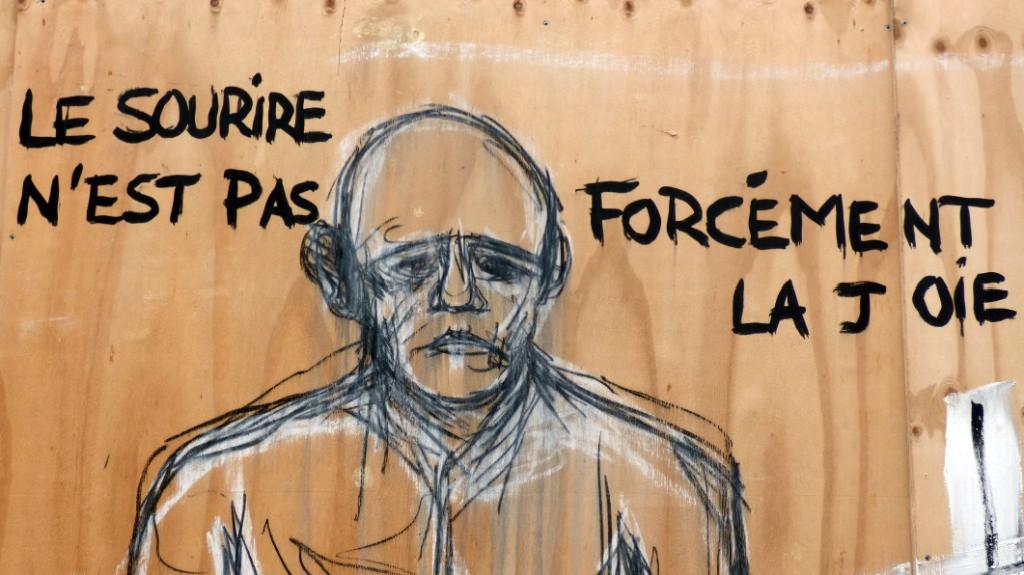 LE SOURIRE
N'EST PAS
FORCÉMENT
LA JOIE